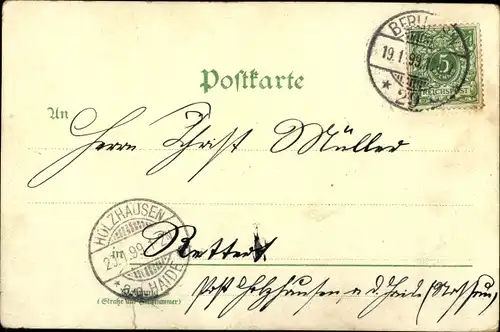 Postkarte
BERLIN
19.1.99.
5
REICHSPOST
An
Herrn Christ Müller
HOLZHAUSEN
20.1.99.
HAIDE
in Rettert
Post Holzhausen a. d. Haide (Nassau)
(Straße und Hausnummer)